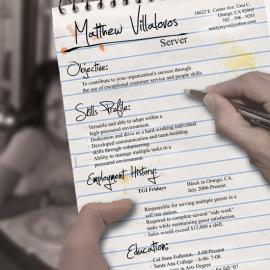 Matthew Villalovos
10622 E. Center Ave. Unit C.
Orange, CA 92869
702 - 596 - 9283
Server
Objective:
To contribute to your organization's success through
the use of exceptional customer service and people skills.
Skills Profile:
- Versatile and able to adapt within a
high-pressured environment.
- Dedication and drive as a hard-working individual
- Developed communication and team-building
skills through volunteering.
- Ability to manage multiple tasks in a
pressured environment.
Employment History:
TGI Fridays
Block in Orange, CA.
July 2006-Present.
Responsible for serving multiple guests in a
self run station.
Required to complete several "side work"
tasks while maintaining guest satisfaction.
Sales would exceed $15,000 a shift.
Education:
Cal State Fullerton - 8-08-Present
Santa Ana College - 8-06- 7-08.
in Arts Degree